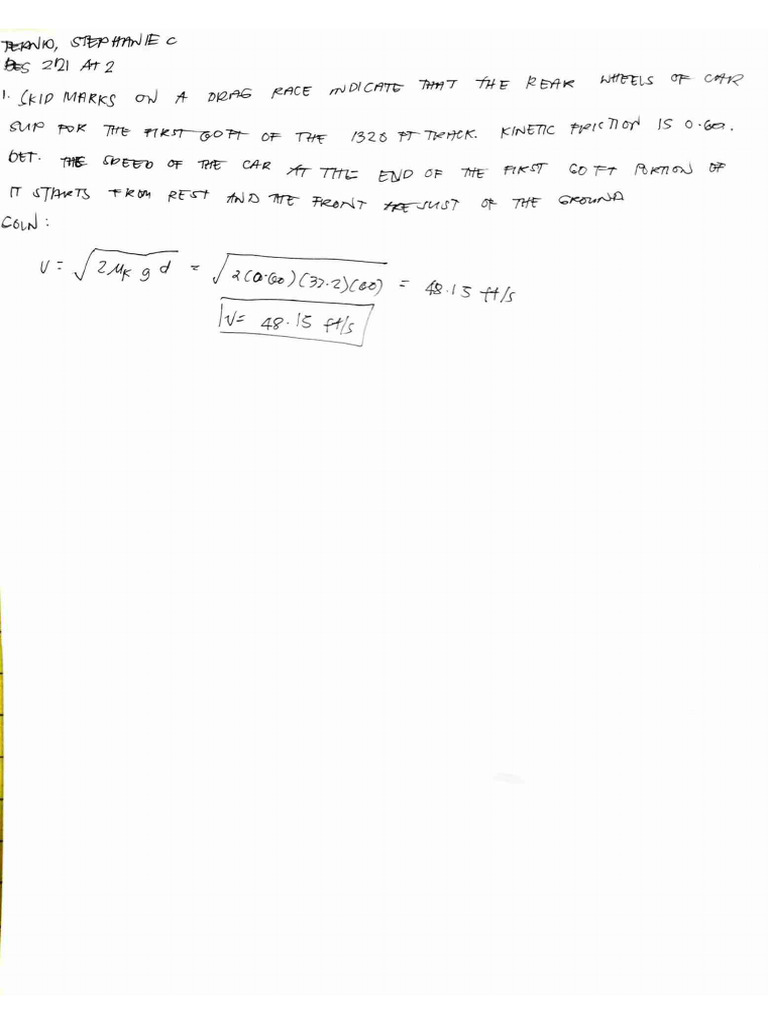 STEPHANIE C
2121 At 2
1. SKID MARKS ON A DRAG RACE INDICATE THAT THE REAR WHEELS OF CAR
SLIP FOR THE FIRST 60 FT OF THE 1320 FT TRACK. KINETIC FRICTION IS 0.60.
DET. THE SPEED OF THE CAR AT THE END OF THE FIRST 60 FT PORTION OF
IT STARTS FROM REST AND THE FRONT ARE JUST OF THE GROUND
SOLN:
V = √2μK g d = √2(0.60)(32.2)(60) = 48.15 ft/s
V= 48.15 ft/s